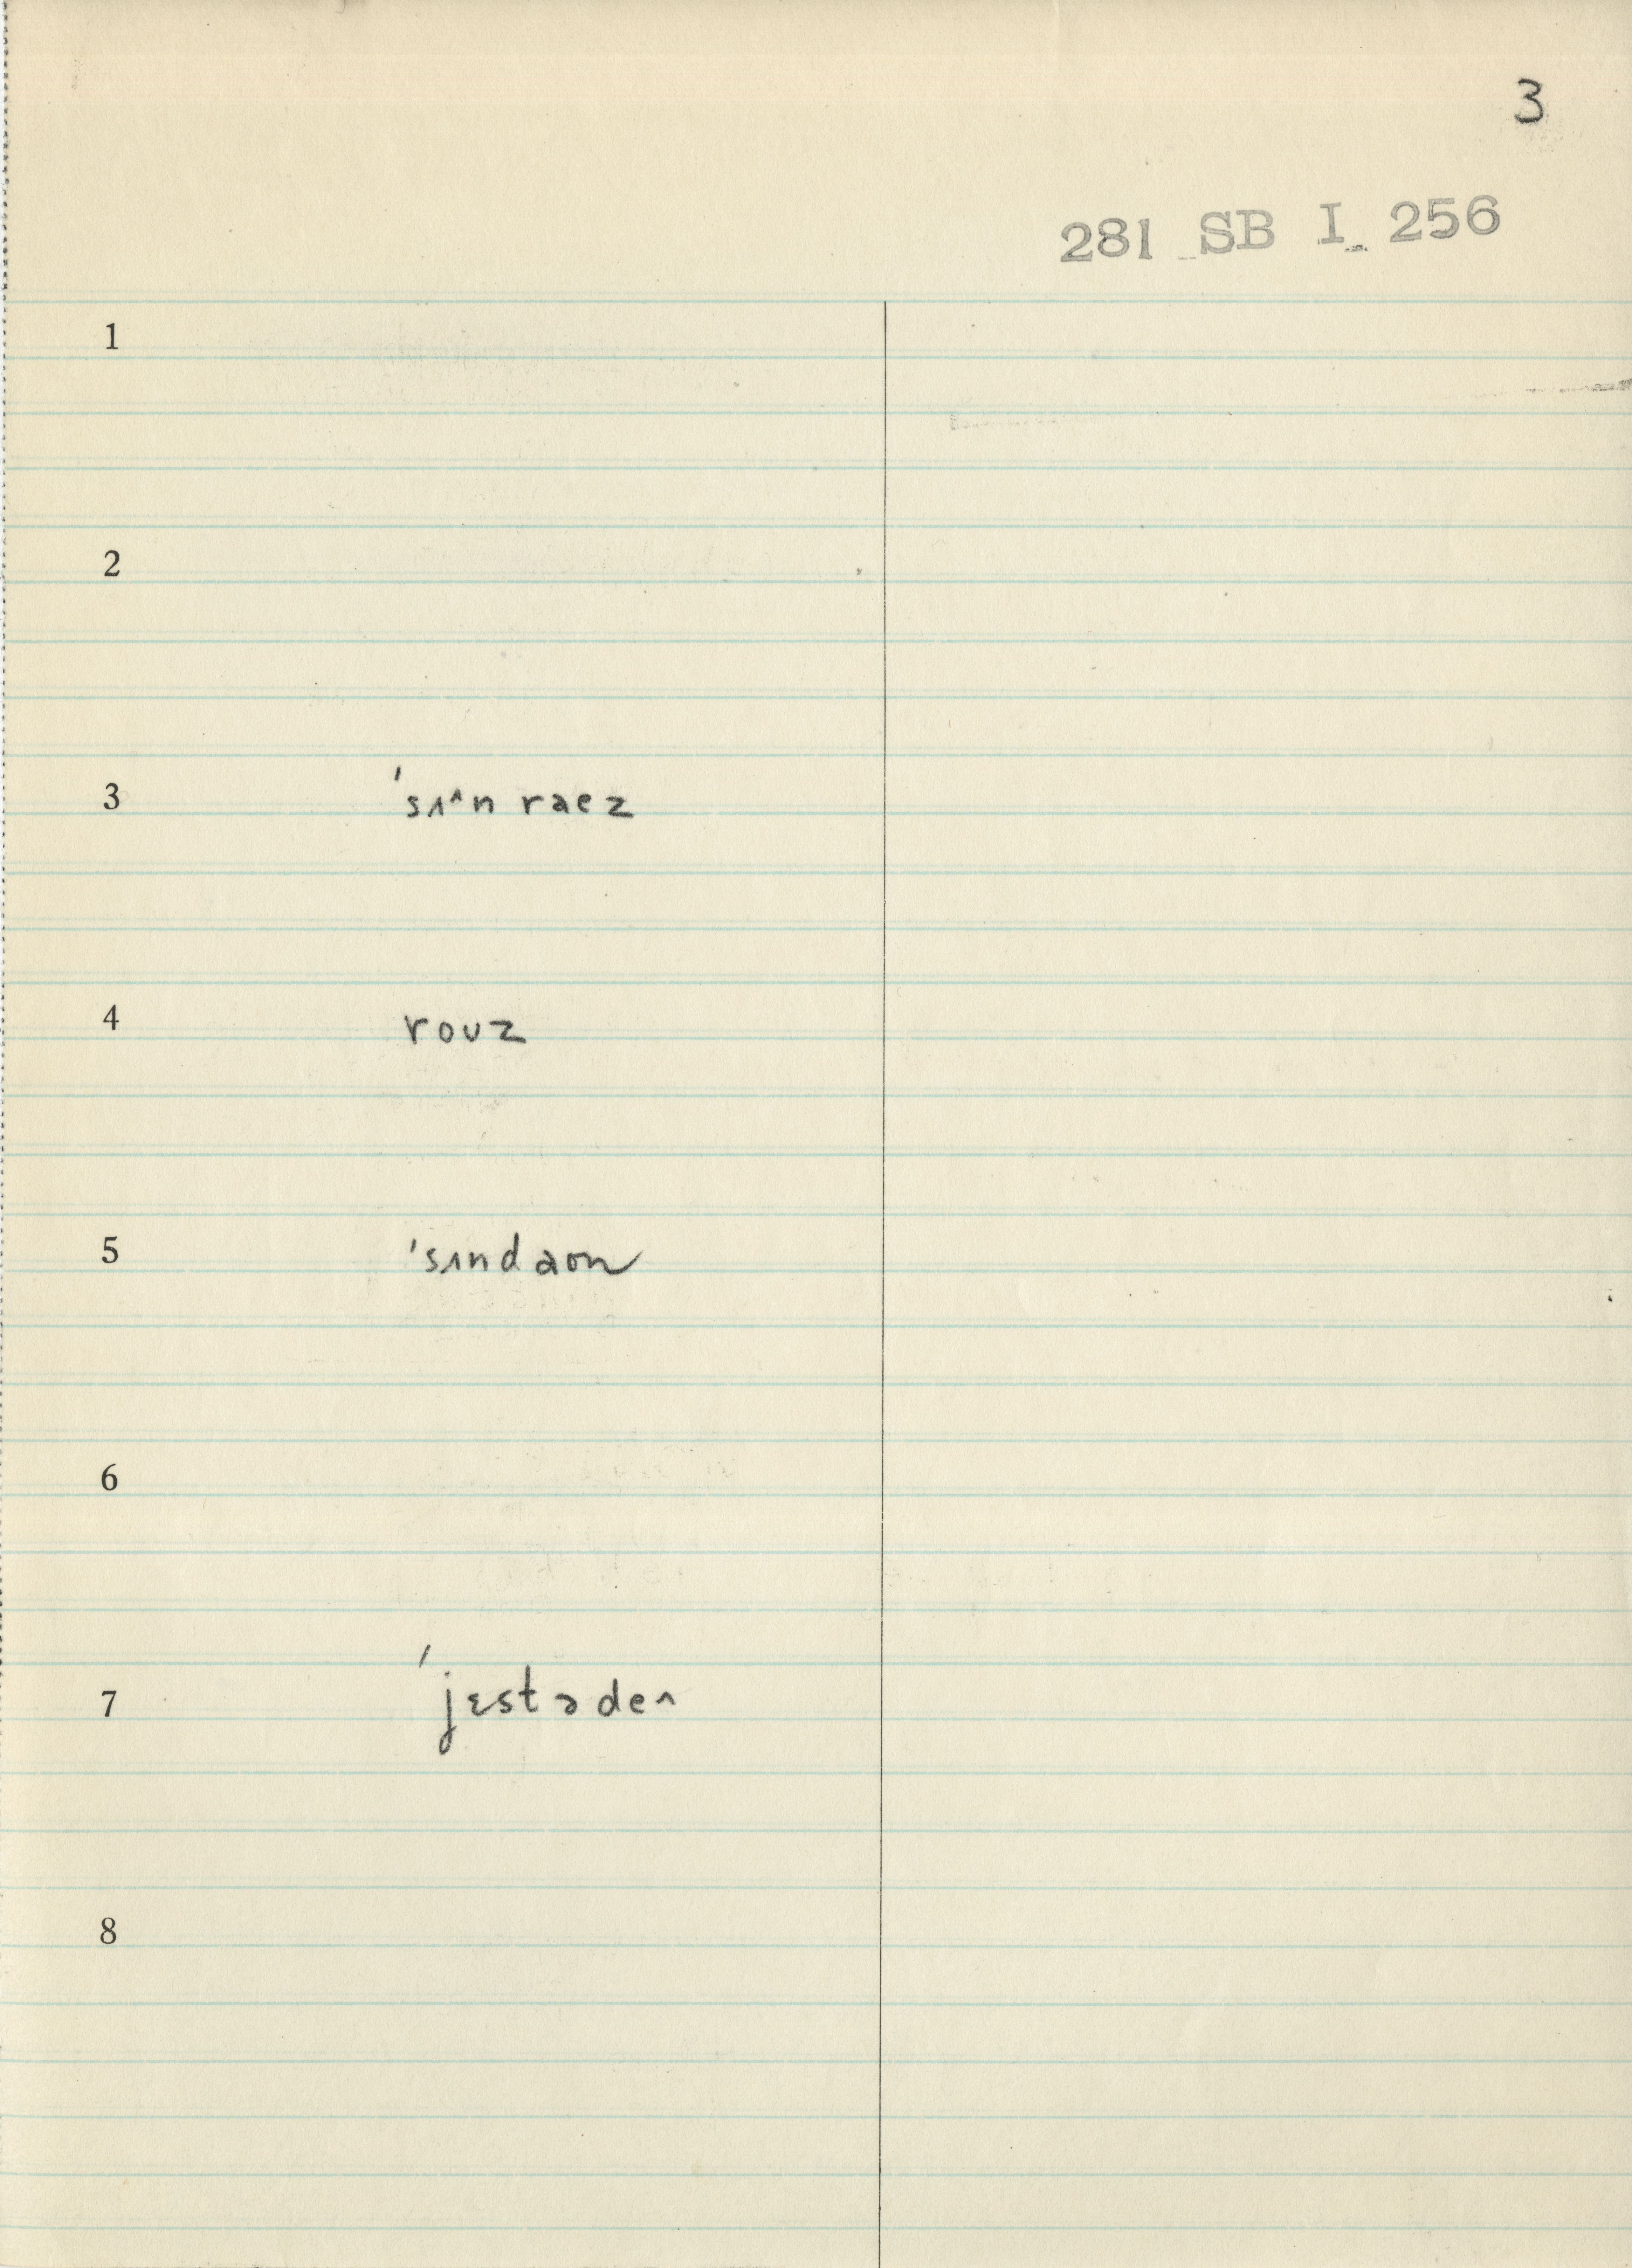 3
281 SB I 256
1
2
3 'sʌ^n raez
4 roʊz
5 'sʌndaon
6
7 'jɛstədeʌ
8